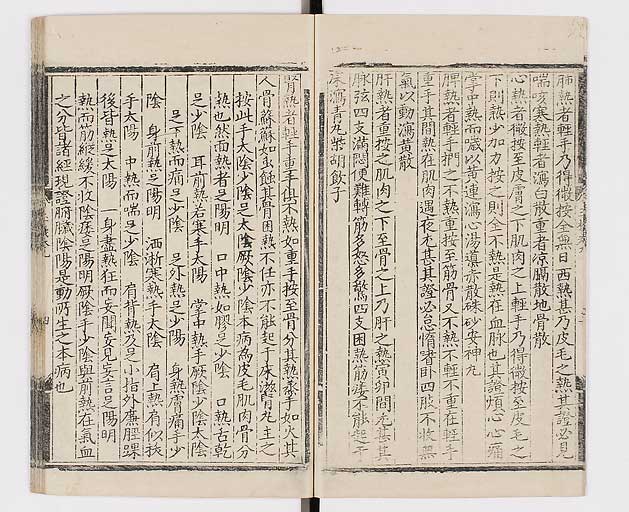 肺熱者輕手乃得微按全無日西熱甚乃皮毛之熱其證必見
喘咳寒熱輕者瀉白散重者凉膈散地骨散
心熱者微按至皮膚之下肌肉之上輕手乃得微按至皮毛之
下則熱少加力按之則全不熱是熱在血脉也其證煩心心痛
掌中熱而噦以黃連瀉心湯導赤散硃砂安神丸
脾熱者輕手捫之不熱重按至筋骨又不熱不輕不重在輕手
重手其間熱在肌肉遇夜尤甚其證必怠惰嗜卧四肢不收無
氣以動瀉黃散
肝熱者重按之肌肉之下至骨之上乃肝之熱寅卯間尤甚其
脉弦四支滿悶便難轉筋多怒多驚四支困熱筋痿不能起于
床瀉青丸柴胡飲子
腎熱者輕手重手俱不熱如重手按至骨分其熱蒸手如火其
人骨蘇蘇如虫蝕其骨困熱不任亦不能起于床滋腎丸主之
按此手太陰少陰足太陰厥陰少陰本病為皮毛肌肉骨分
熱也然而熱者足陽明 口中熱如膠足少陰 口熱舌乾
足少陰 耳前熱若寒手太陽 掌中熱手厥陰少陰太陰
足下熱而痛足少陰 足外熱足少陽 身熱膚痛手少
陰 身前熱足陽明 洒淅寒熱手太陰 肩上熱肩似拔
手太陽 中熱而喘足少陰 肩背熱及足小指外廉脛踝
後皆熱足太陽 一身盡熱狂而妄聞妄見妄言足陽明
熱而筋縱緩不收陰痿足陽明厥陰手少陰與前熱在氣血
之分皆諸經現證腑臟陰陽是動所生之本病也